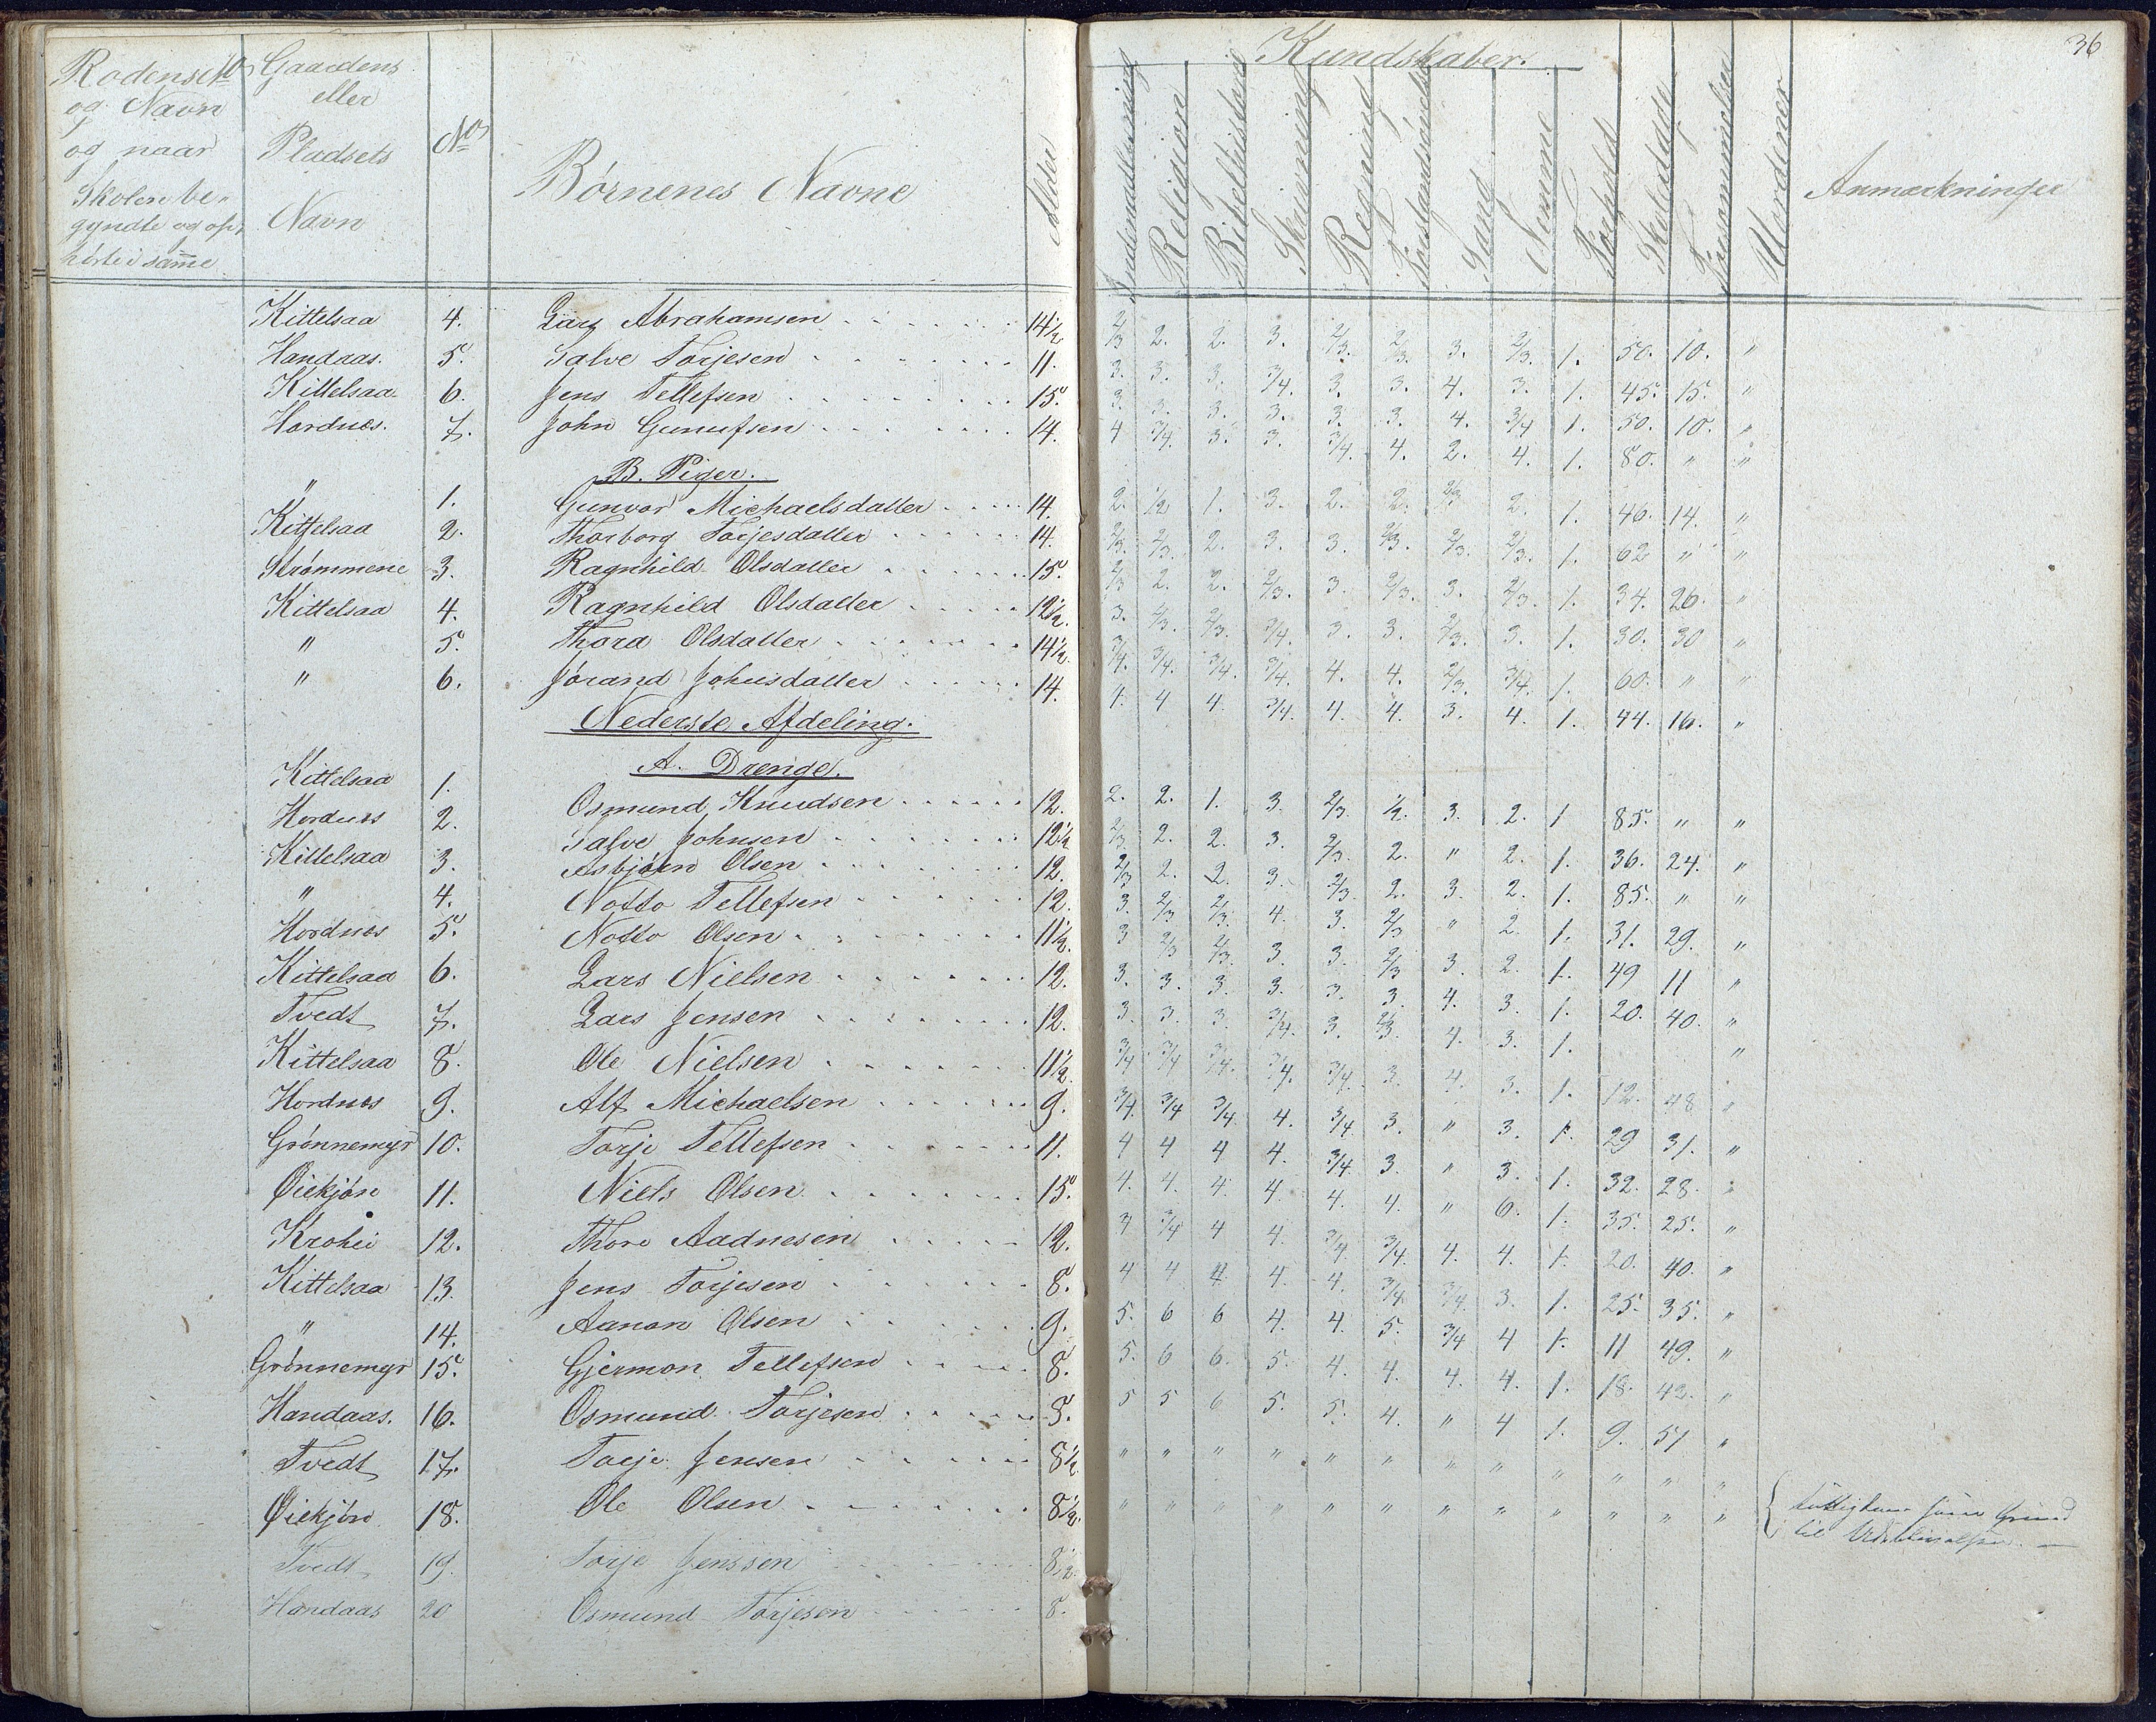 36
Kundskaber.
Rodens No Gaardens
og Navn eller
og naar Pladsets No
Skolen be- Navn Børnenes Navne Alder
gyndte og op,
hørte i samme
Indenadlæsning Religion Bibelhistorie Skrivning Regning Forstandsøvelse Sang Nemme Forhold Skoledage Forsømmelser Uordener Anmærkninger
Kittelsaa 4. Lars Abrahamsen 14½ 2/3 2. 2. 3. 2/3. 2/3. 3. 2/3. 1. 50. 10. "
Handaas. 5. Salve Torjesen 11. 3. 3. 3. 3/4. 3. 3. 4. 3. 1. 45. 15. "
Kittelsaa 6. Jens Tellefsen 15. 3. 3. 3. 3. 3. 3. 4. 3/4 1. 50. 10. "
Hordnæs. 7. John Gunufsen 14. 4 3/4. 3. 3. 3/4. 4. 2. 4. 1. 80. " "
B. Piger.
" 1. Gunvor Michaelsdatter 14. 2. 1/2 1. 3. 2. 2. 2/3 2. 1. 46. 14. "
Kittelsaa 2. Thorborg Torjesdatter 14. 2/3. 2/3. 2. 3. 3. 2/3. 2/3. 2/3. 1. 62 " "
Strømmene 3. Ragnhild Olsdatter 15. 2/3 2. 2. 2/3. 3. 2/3. 3. 2/3. 1. 34. 26. "
Kittelsaa 4. Ragnhild Olsdatter 12½. 3. 2/3. 2/3. 3/4. 3. 3. 2/3. 3. 1. 30. 30 "
" 5. Thora Olsdatter 14½. 3/4. 3/4. 3/4. 3/4. 4. 4. 2/3. 3/4. 1. 60. " "
" 6. Jørand Johnsdatter 14. 4. 4 4. 3/4. 4. 4. 3. 4. 1. 44. 16. "
Nederste Afdeling.
A. Drenge.
Kittelsaa 1. Osmund Knudsen 12. 2. 2. 1. 3. 2/3. 1/2. 3. 2. 1 85. " "
Hordnæs 2. Salve Johnsen 12½ 2/3 2. 2. 3. 2/3. 2. " 2. 1. 36. 24. "
Kittelsaa 3. Asbjørn Olsen 12. 2/3 2. 2. 3. 2/3. 2. 3. 2. 1. 85. " "
" 4. Notto Tellefsen 12. 3. 2/3 2/3. 4. 3. 2/3 " 2. 1. 31. 29. "
Hordnæs 5. Notto Olsen 11½. 3 2/3 2/3. 3. 3. 2/3 3. 2. 1. 49 11 "
Kittelsaa 6. Lars Nielsen 12. 3. 3. 3. 3. 3. 3. 4. 3. 1. 20. 40. "
Tvedt 7. Lars Jensen 12. 3. 3. 3. 3/4. 3. 2/3. 4. 3. 1. "
Kittelsaa 8. Ole Nielsen 11½. 3/4 3/4 3/4. 3/4. 3/4. 3. 4. 3. 1. 12. 48 "
Hordnæs 9. Alf Michaelsen 9. 3/4. 3/4 3/4. 4. 3/4. 3. " 3. 1. 29 31. "
Grønnemyr 10. Torje Tellefsen 11. 4 4 4 4. 3/4. 3. " 3. 1. 32. 28. "
Øiekjøn 11. Niels Olsen 15. 4. 4. 4. 4. 4. 4. " 6. 1. 35. 25. "
Krohei 12. Thore Aadnesen 12. 4 3/4 4 4. 3/4. 3/4. 4. 4. 1. 20. 40. "
Kittelsaa 13. Jens Torjesen 8. 4 4 4. 4. 4. 3/4. 3/4. 3. 1. 25. 35. "
" 14. Aanon Olsen 9. 5. 6 6 4. 4. 5. 3/4 4 1. 11 49. "
Grønnemyr 15. Gjermon Tellefsen 8. 5. 6 6. 5. 4. 4. 4. 4. 1. 18. 42. "
Handaas. 16. Osmund Torjesen 8. 5 5 6 5. 5. 4. " 4 1. 9. 51 "
Tvedt 17. Torje Jensen 8½ " " " " " " " " " " " "
Øiekjøn 18. Ole Olsen 8½. " " " " " " " " " " " "
til
Tvedt 19. Torje Jenssen 8½.
Handaas 20 Osmund Torjesen 8.